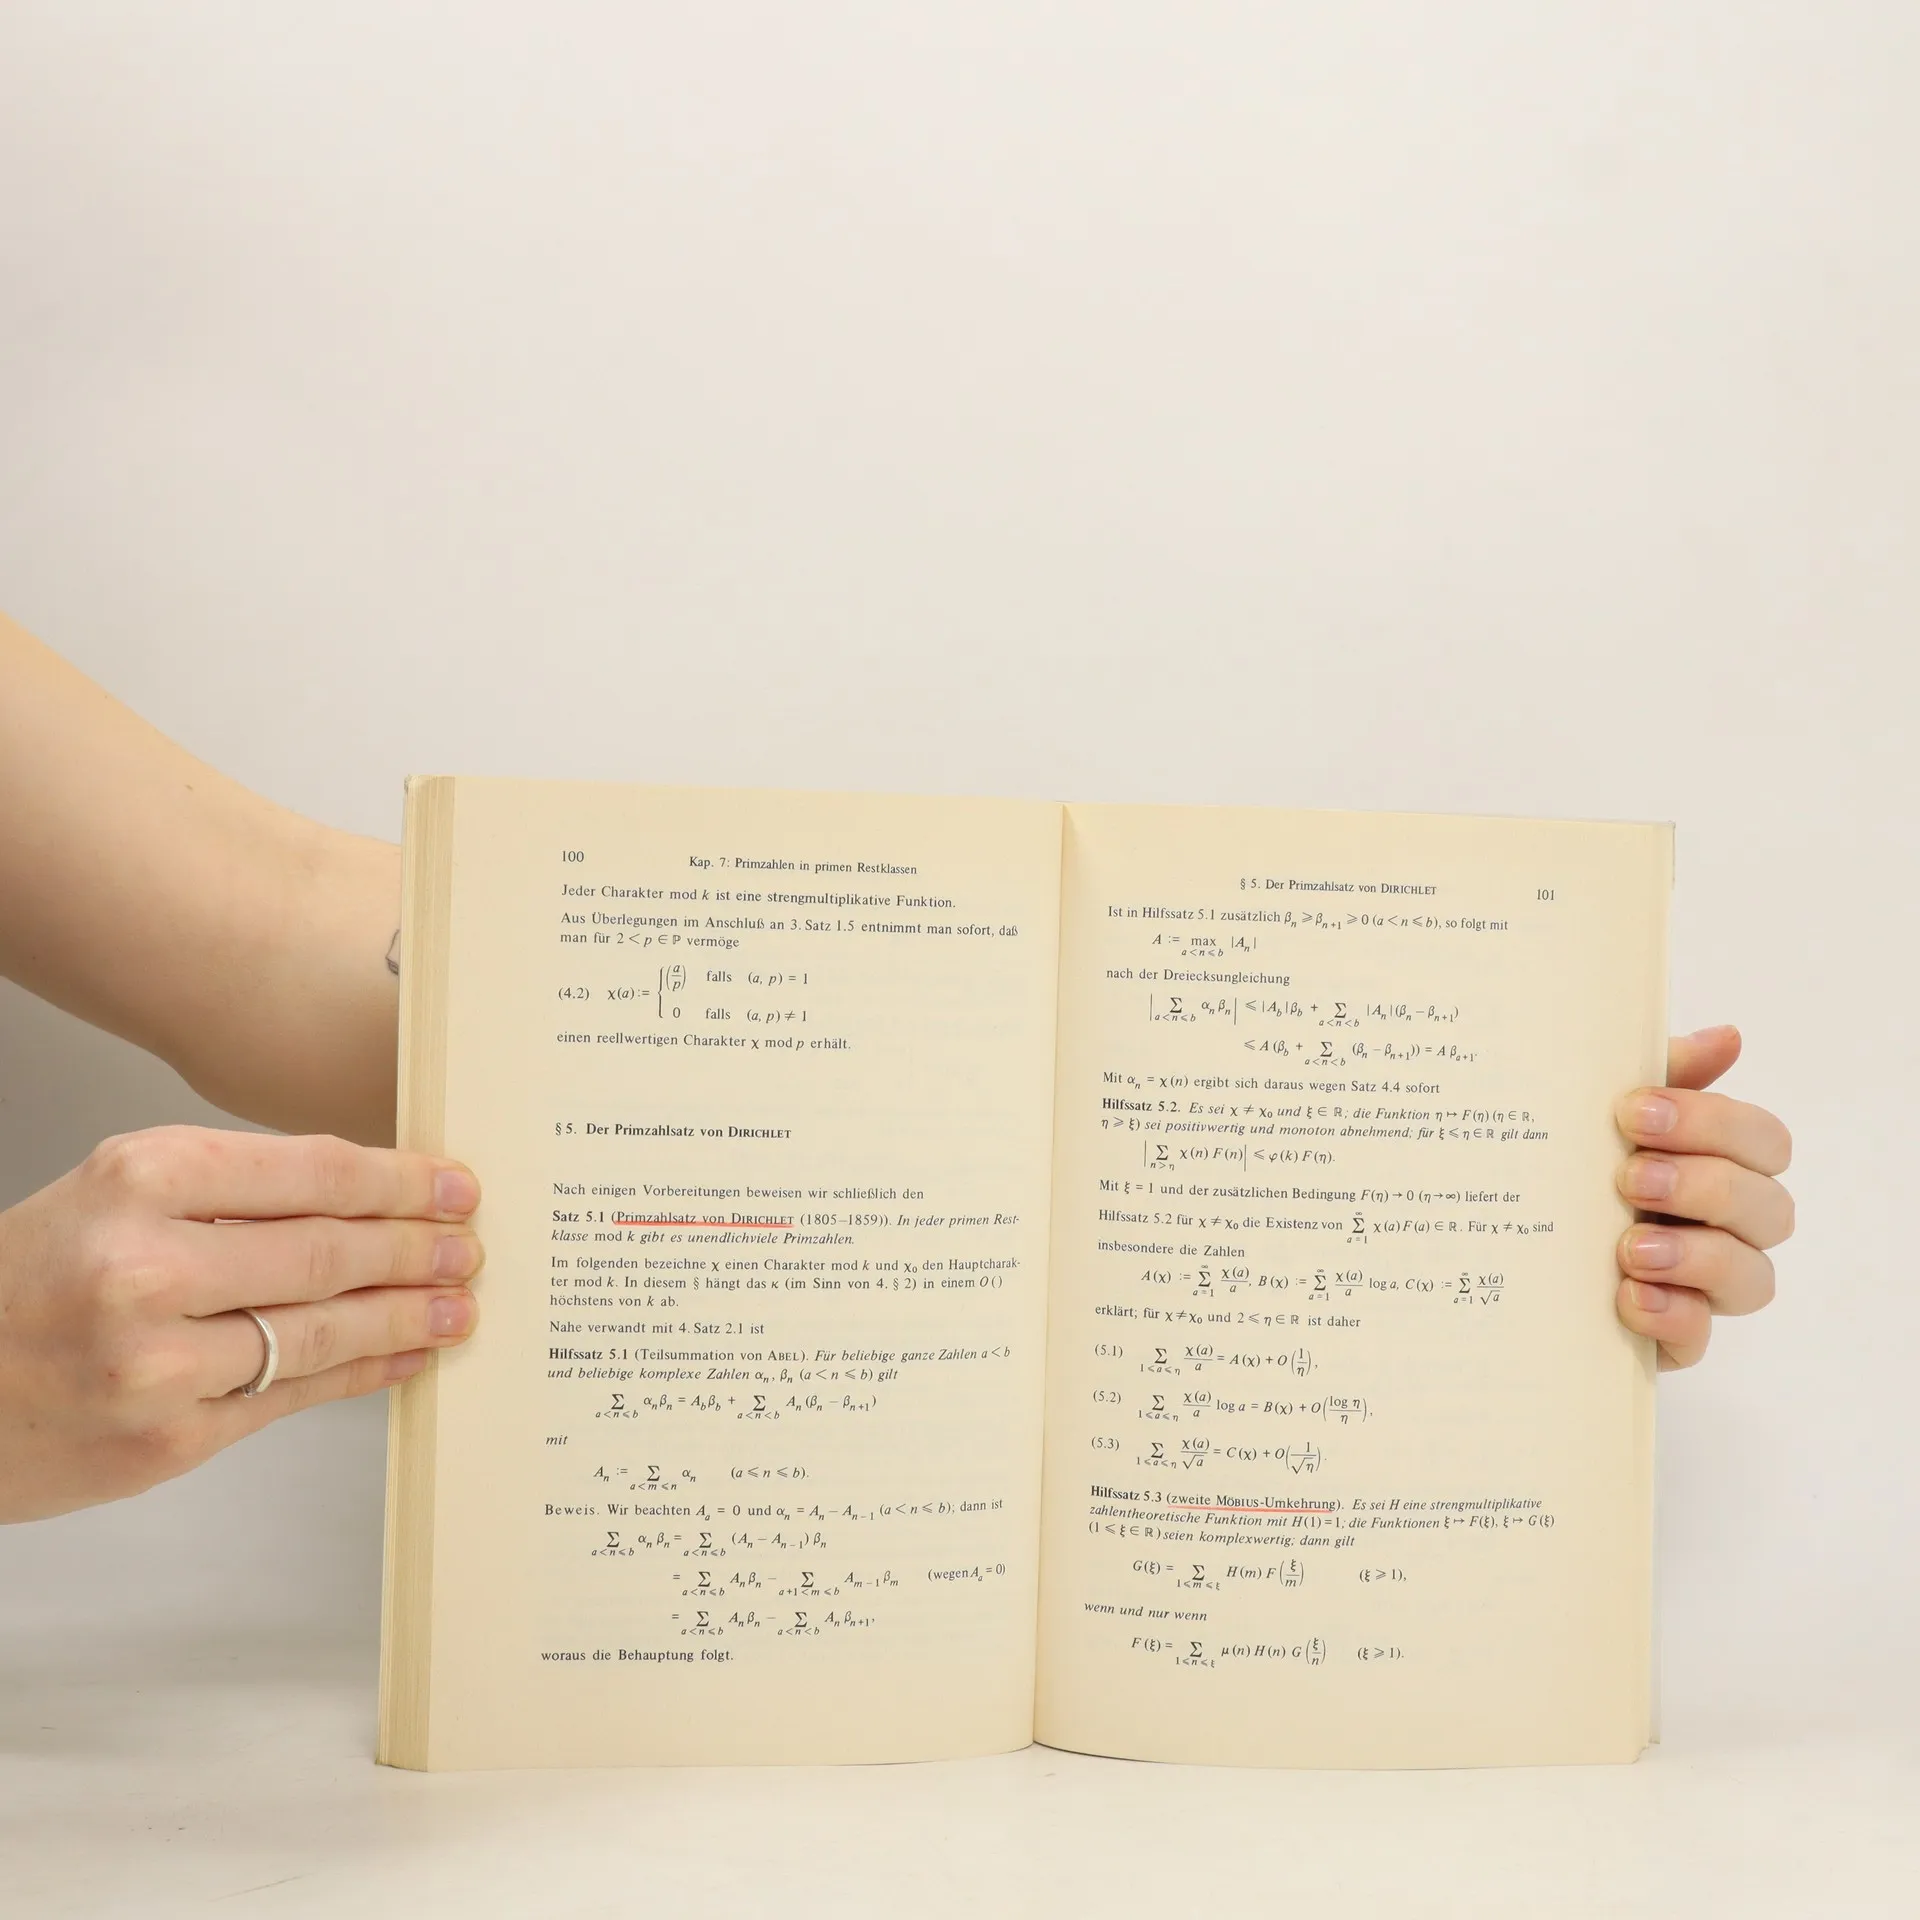 100 Kap. 7: Primzahlen in primen Restklassen
Jeder Charakter mod k ist eine strengmultiplikative Funktion.
Aus Überlegungen im Anschluß an 3. Satz 1.5 entnimmt man sofort, daß
man für 2 < p ∈ ℙ vermöge
(4.2) χ(a) := { (a/p) falls (a, p) = 1
0 falls (a, p) ≠ 1
einen reellwertigen Charakter χ mod p erhält.
§ 5. Der Primzahlsatz von DIRICHLET
Nach einigen Vorbereitungen beweisen wir schließlich den
Satz 5.1 (Primzahlsatz von DIRICHLET (1805–1859)). In jeder primen Rest-
klasse mod k gibt es unendlichviele Primzahlen.
Im folgenden bezeichne χ einen Charakter mod k und χ₀ den Hauptcharak-
ter mod k. In diesem § hängt das κ (im Sinn von 4. § 2) in einem O()
höchstens von k ab.
Nahe verwandt mit 4. Satz 2.1 ist
Hilfssatz 5.1 (Teilsummation von ABEL). Für beliebige ganze Zahlen a < b
und beliebige komplexe Zahlen αₙ, βₙ (a < n ⩽ b) gilt
∑_{a<n⩽b} αₙβₙ = A_bβ_b + ∑_{a<n<b} Aₙ(βₙ − βₙ₊₁)
mit
Aₙ := ∑_{a<m⩽n} αₙ (a ⩽ n ⩽ b).
Beweis. Wir beachten Aₐ = 0 und αₙ = Aₙ − Aₙ₋₁ (a < n ⩽ b); dann ist
∑_{a<n⩽b} αₙβₙ = ∑_{a<n⩽b} (Aₙ − Aₙ₋₁) βₙ
= ∑_{a<n⩽b} Aₙβₙ − ∑_{a+1<m⩽b} Aₘ₋₁βₘ (wegen Aₐ = 0)
= ∑_{a<n⩽b} Aₙβₙ − ∑_{a<n<b} Aₙβₙ₊₁,
woraus die Behauptung folgt.
§ 5. Der Primzahlsatz von DIRICHLET 101
Ist in Hilfssatz 5.1 zusätzlich βₙ ⩾ βₙ₊₁ ⩾ 0 (a < n ⩽ b), so folgt mit
A := max_{a<n⩽b} |Aₙ|
nach der Dreiecksungleichung
|∑_{a<n⩽b} αₙβₙ| ⩽ |A_b|β_b + ∑_{a<n<b} |Aₙ|(βₙ − βₙ₊₁)
⩽ A (β_b + ∑_{a<n<b} (βₙ − βₙ₊₁)) = A βₐ₊₁.
Mit αₙ = χ(n) ergibt sich daraus wegen Satz 4.4 sofort
Hilfssatz 5.2. Es sei χ ≠ χ₀ und ξ ∈ ℝ; die Funktion η ↦ F(η) (η ∈ ℝ,
η ⩾ ξ) sei positivwertig und monoton abnehmend; für ξ ⩽ η ∈ ℝ gilt dann
|∑_{n>η} χ(n) F(n)| ⩽ φ(k) F(η).
Mit ξ = 1 und der zusätzlichen Bedingung F(η) → 0 (η → ∞) liefert der
Hilfssatz 5.2 für χ ≠ χ₀ die Existenz von ∑_{a=1}^{∞} χ(a) F(a) ∈ ℝ. Für χ ≠ χ₀ sind
insbesondere die Zahlen
A(χ) := ∑_{a=1}^{∞} χ(a)/a, B(χ) := ∑_{a=1}^{∞} χ(a)/a log a, C(χ) := ∑_{a=1}^{∞} χ(a)/√a
erklärt; für χ ≠ χ₀ und 2 ⩽ η ∈ ℝ ist daher
(5.1) ∑_{1⩽a⩽η} χ(a)/a = A(χ) + O(1/η),
(5.2) ∑_{1⩽a⩽η} χ(a)/a log a = B(χ) + O(log η/η),
(5.3) ∑_{1⩽a⩽η} χ(a)/√a = C(χ) + O(1/√η).
Hilfssatz 5.3 (zweite MÖBIUS-Umkehrung). Es sei H eine strengmultiplikative
zahlentheoretische Funktion mit H(1) = 1; die Funktionen ξ ↦ F(ξ), ξ ↦ G(ξ)
(1 ⩽ ξ ∈ ℝ) seien komplexwertig; dann gilt
G(ξ) = ∑_{1⩽m⩽ξ} H(m) F(ξ/m) (ξ ⩾ 1),
wenn und nur wenn
F(ξ) = ∑_{1⩽n⩽ξ} μ(n) H(n) G(ξ/n) (ξ ⩾ 1).